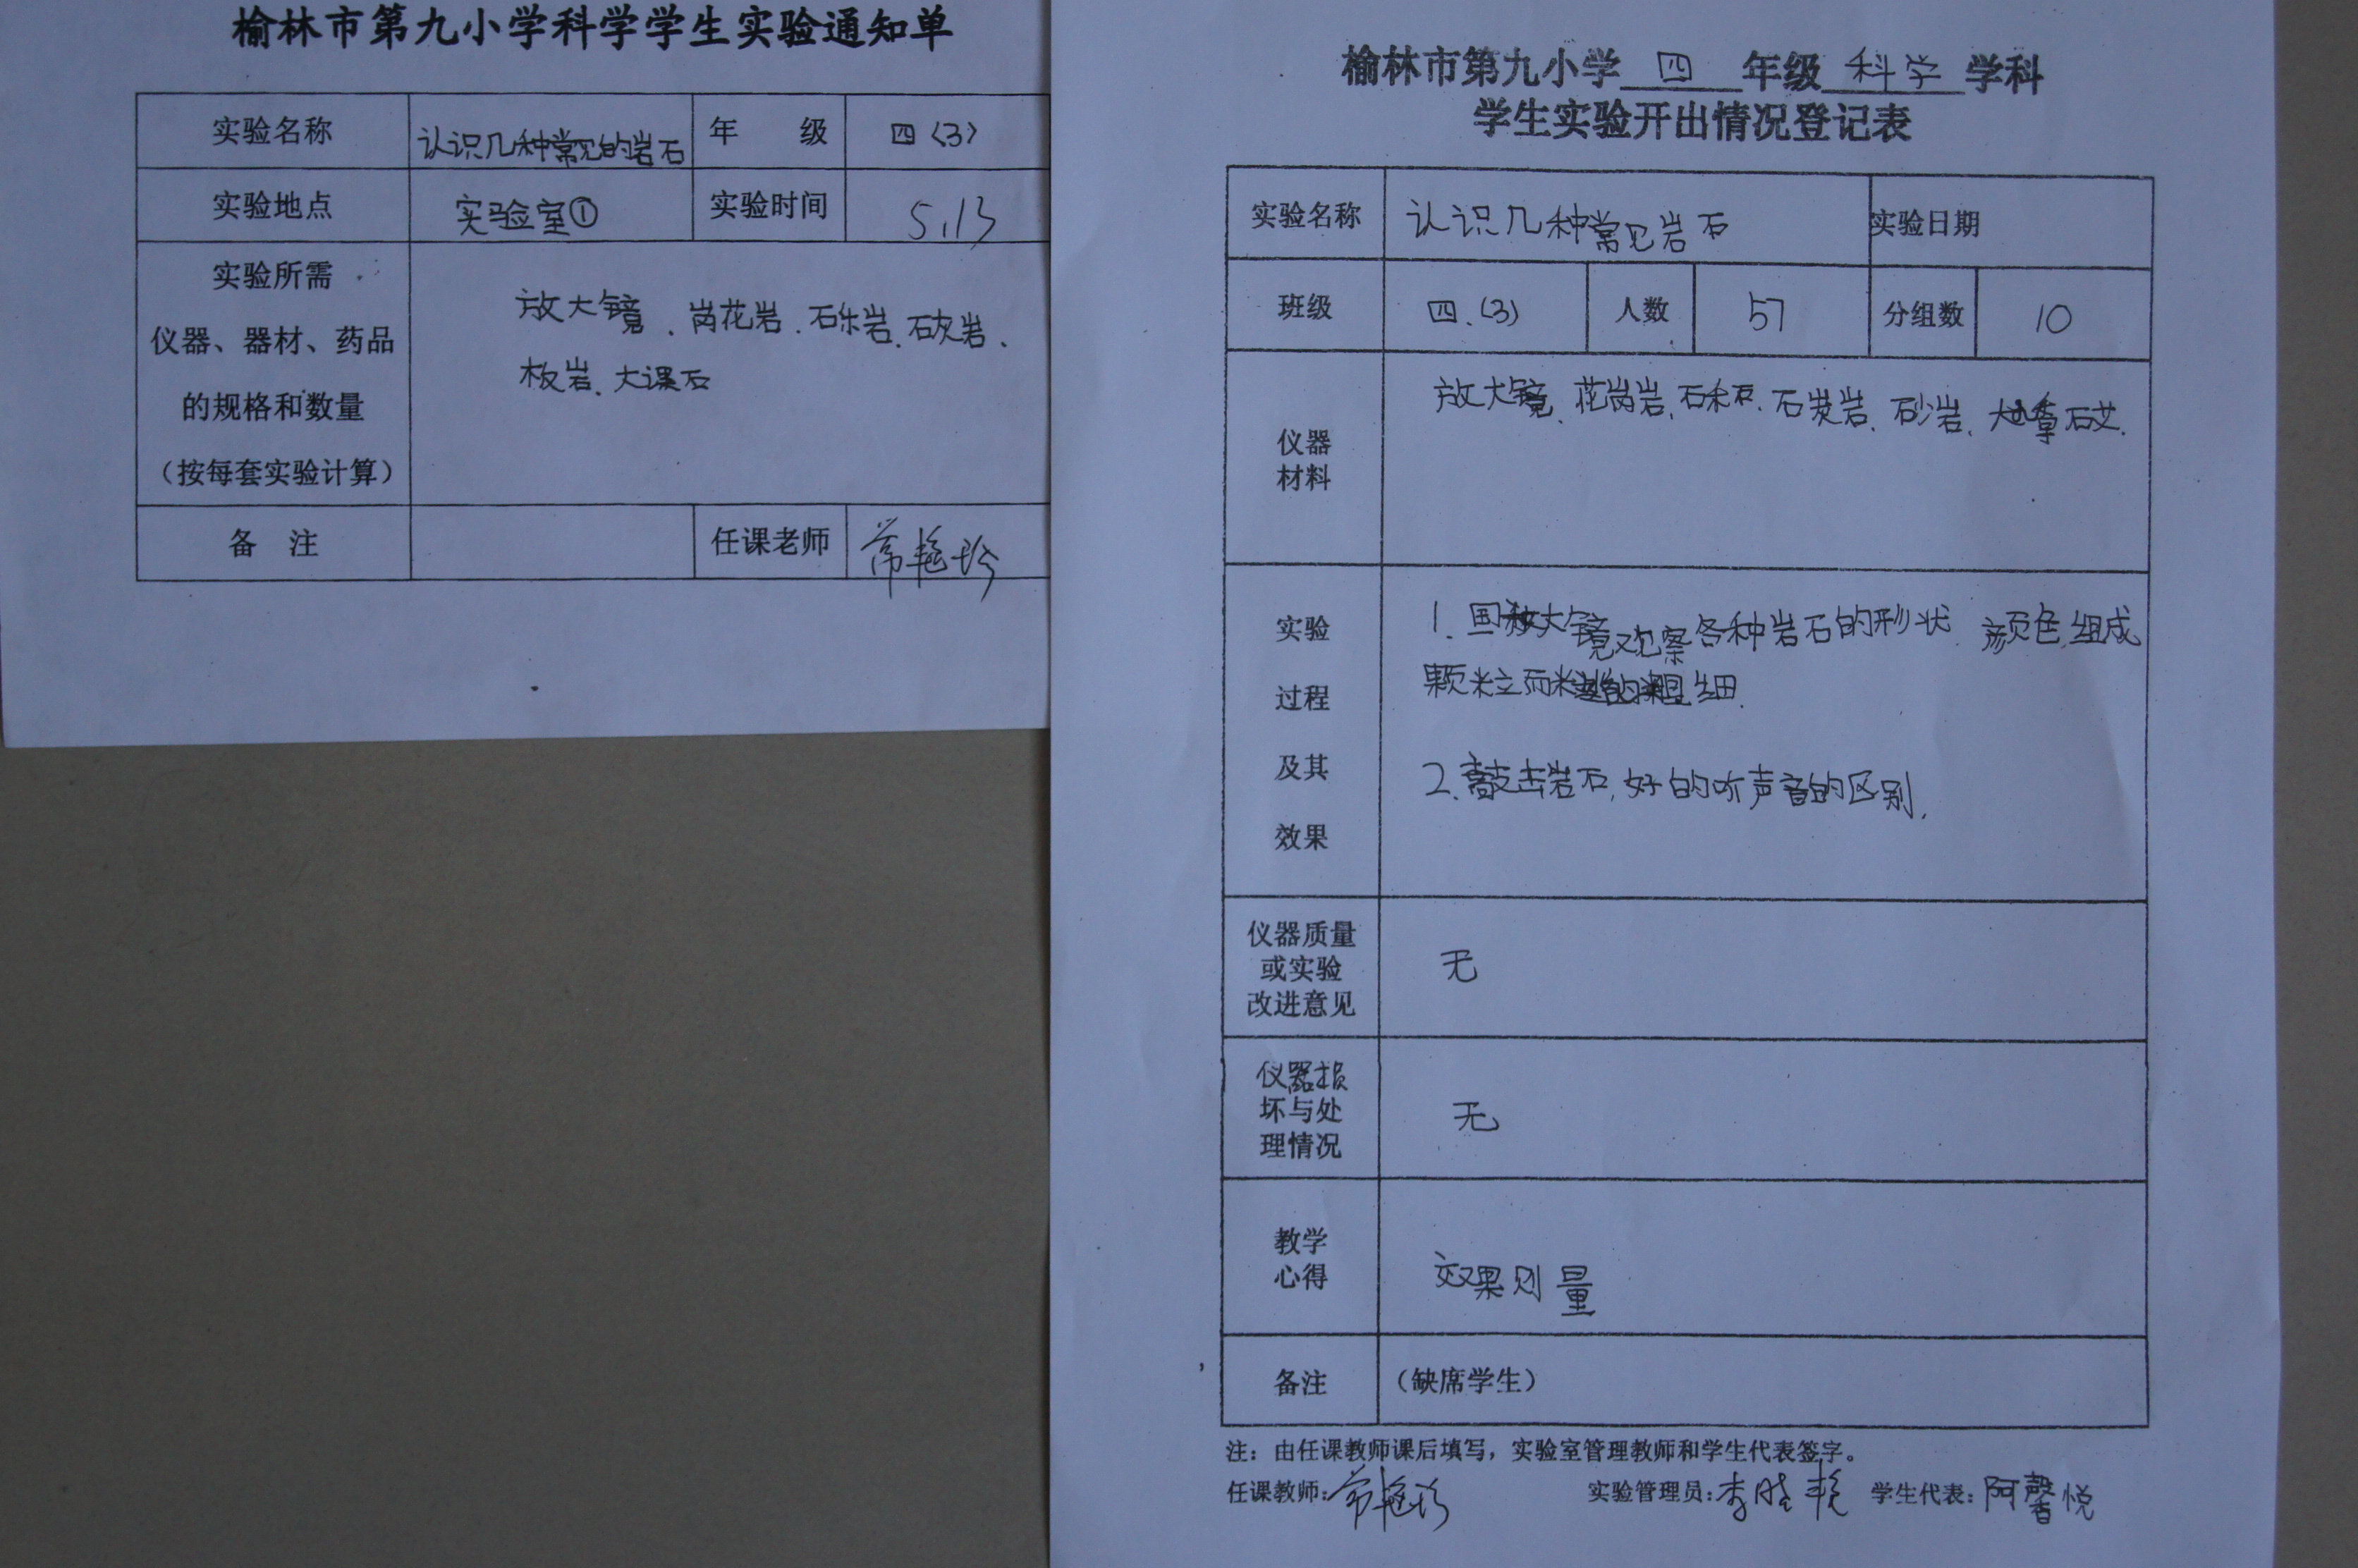 榆林市第九小学科学学生实验通知单
实验名称 认识几种常见的岩石 年 级 四〈3〉
实验地点 实验室① 实验时间 5.13
实验所需
仪器、器材、药品
的规格和数量
（按每套实验计算）
放大镜、岗花岩、石乐岩、石灰岩、
板岩、大课石
备 注 任课老师 常艳珍
榆林市第九小学 四 年级 科学 学科
学生实验开出情况登记表
实验名称 认识几种常见岩石 实验日期
班级 四.(3) 人数 57 分组数 10
仪器
材料
放大镜、花岗岩、石岩、砂岩、
实验
过程
及其
效果
1. 大镜观察各种岩石的形状 颜色.组成
颗粒 细.
2.敲击岩石,好的听声音的区别.
仪器质量
或实验
改进意见
无
仪器损
坏与处
理情况
无
教学
心得
效果则量
备注 （缺席学生）
注：由任课教师课后填写，实验室管理教师和学生代表签字。
任课教师：常艳珍 实验管理员：李 艳 学生代表：阿馨悦